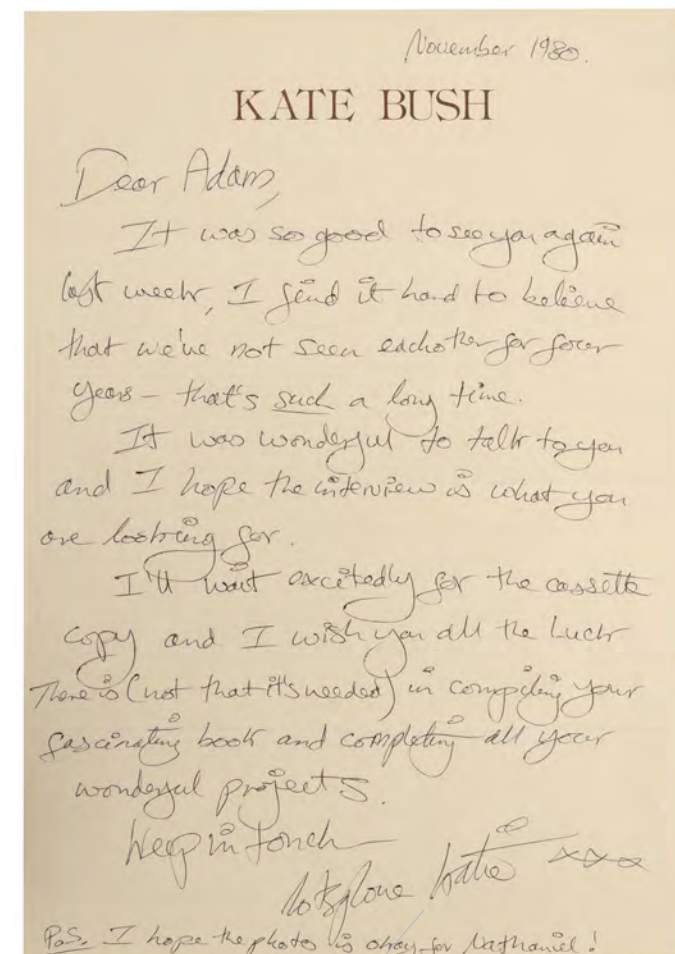 November 1980.
KATE BUSH
Dear Adam,
It was so good to see you again
last week, I find it hard to believe
that we've not seen eachother for four
years – that's such a long time.
It was wonderful to talk to you
and I hope the interview is what you
are looking for.
I'll wait excitedly for the cassette
copy and I wish you all the Luck
There is (not that it's needed) in compiling your
fascinating book and completing all your
wonderful projects.
Keep in touch
lots of love Katie xxx
P.S. I hope the photo is okay for Nathaniel!